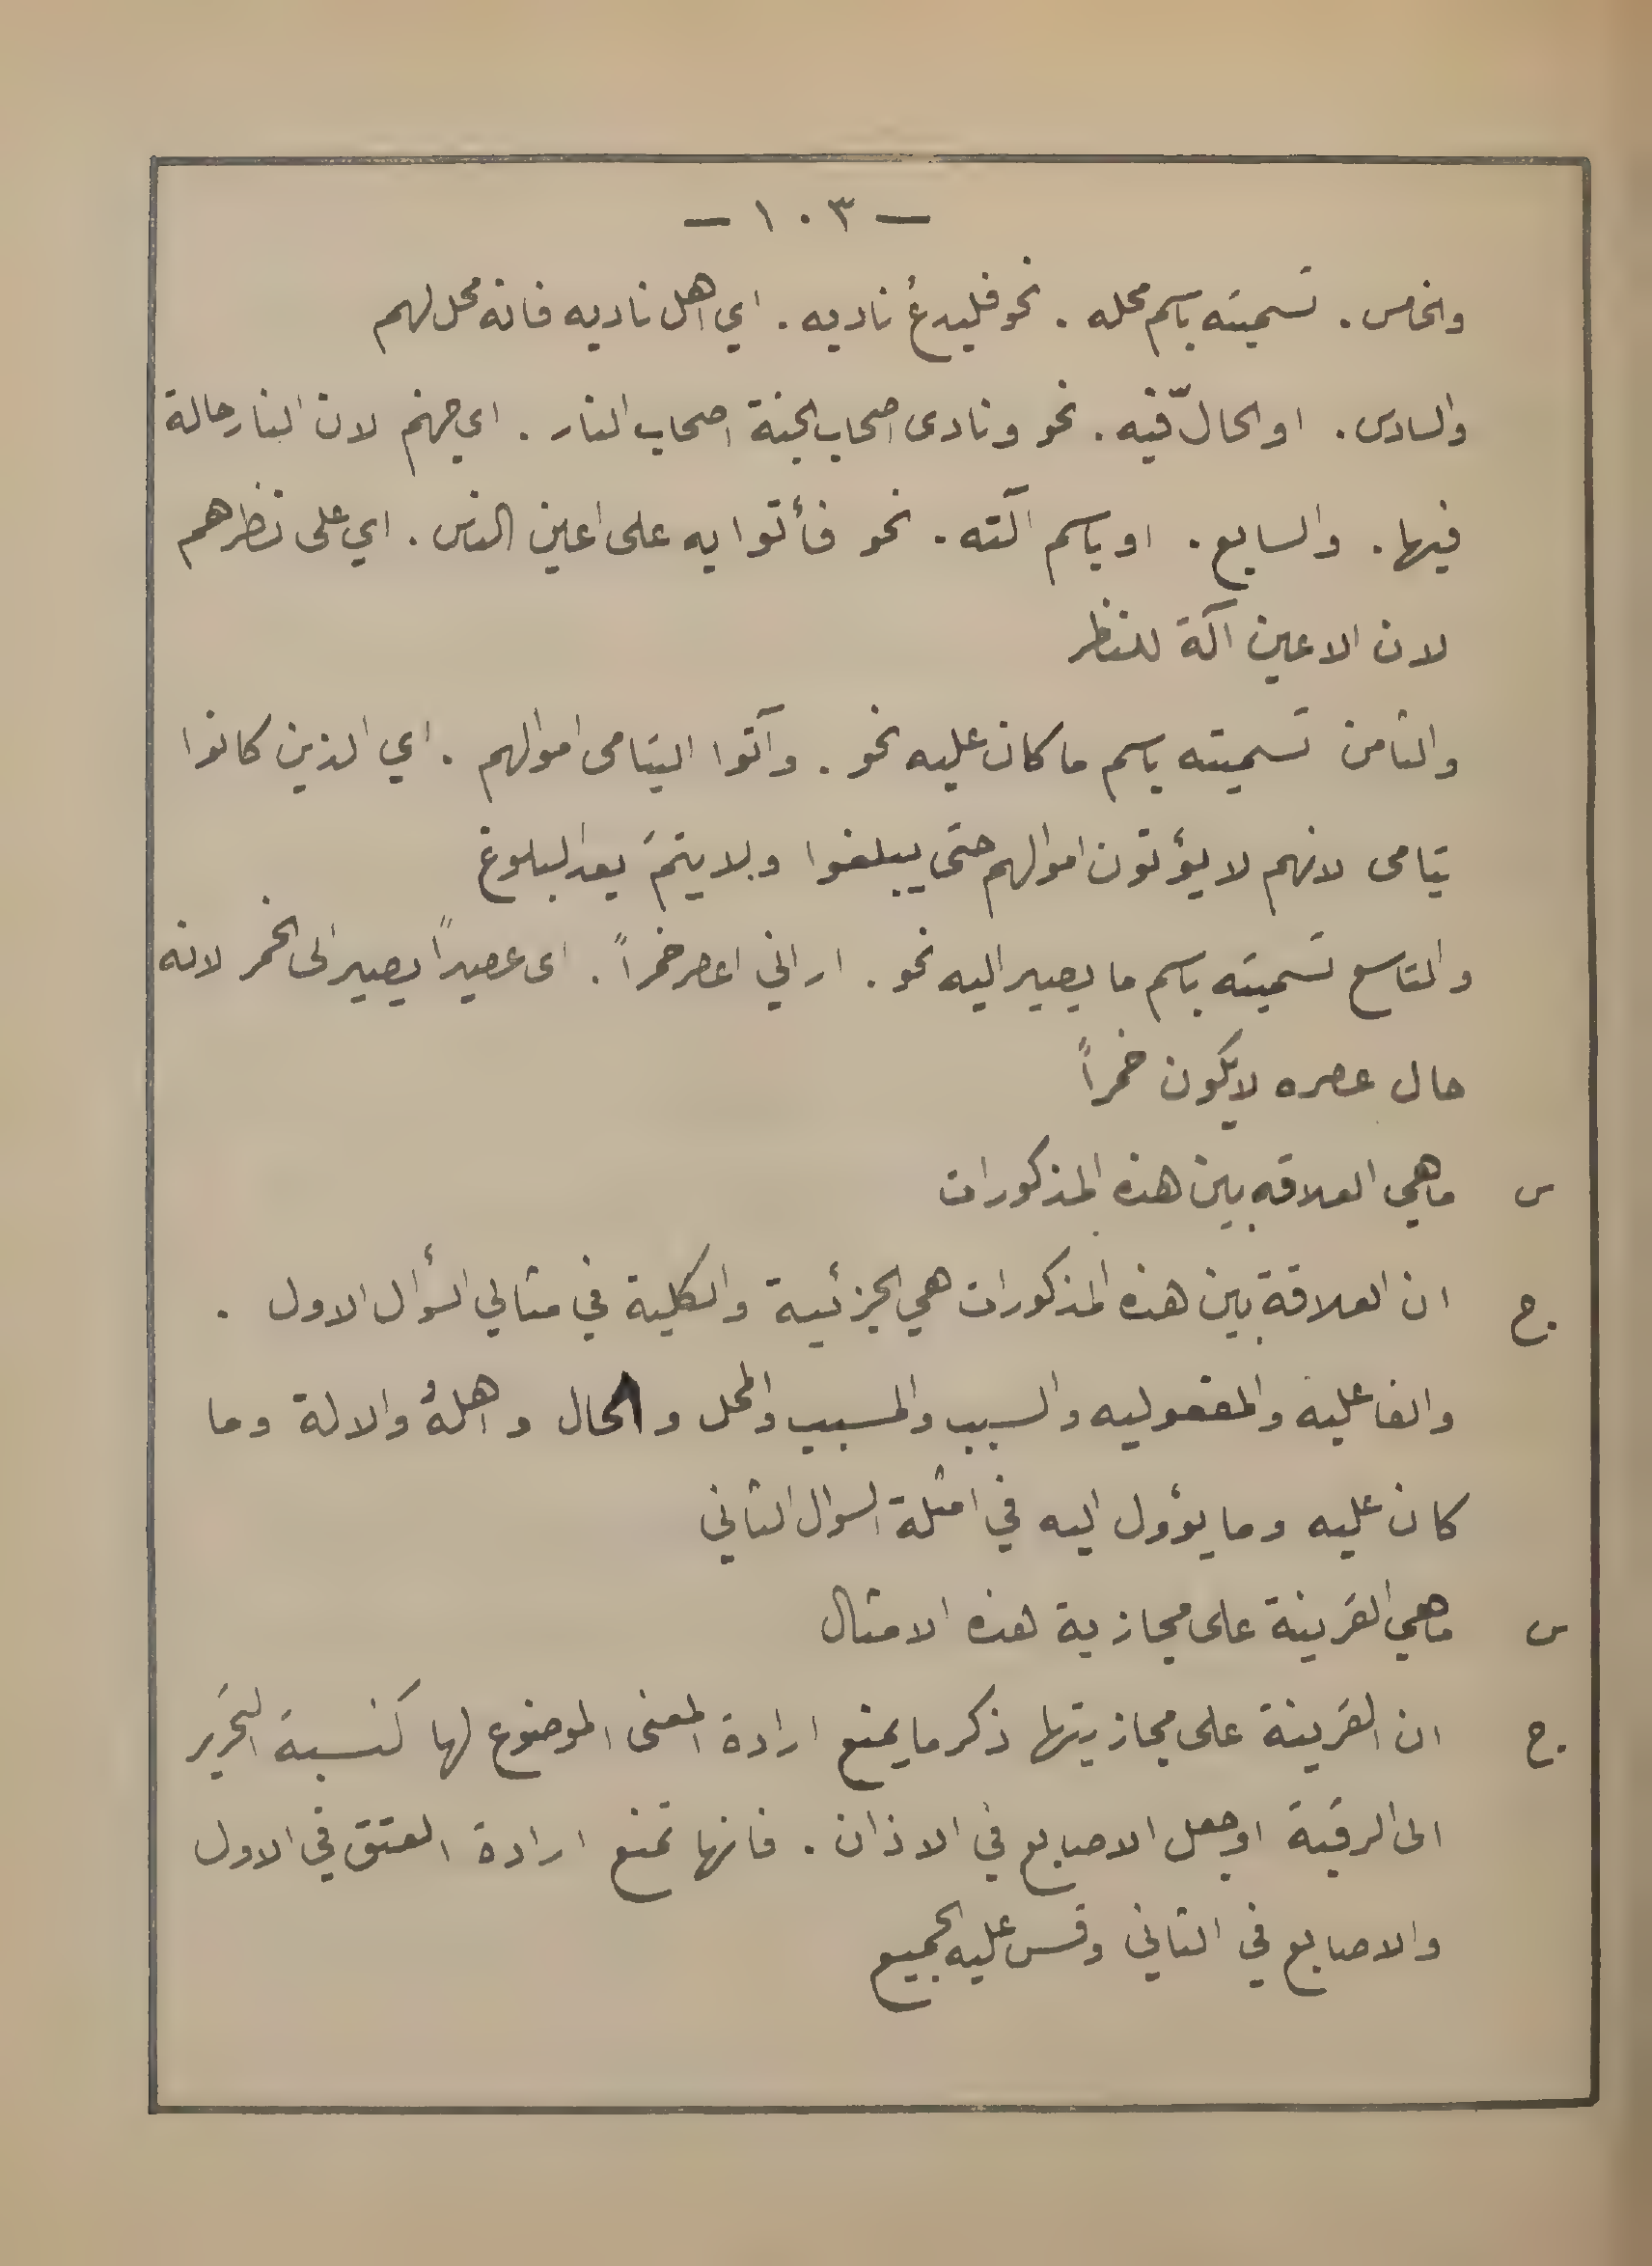 — ١٠٣ —
والخامس . تسميته باسم محله . نحو فليدعُ ناديه . اي اهل ناديه فانه محل لهم
والسادس . او الحالّ فيه . نحو ونادى اصحاب الجنة اصحاب النار . اي جهنم لان النار حالة
فيها . والسابع . او باسم آلته . نحو فأتوا به على اعين الناس . اي على نظرهم
لان الاعين آلة للنظر
والثامن تسميته باسم ما كان عليه نحو . وآتوا اليتامى اموالهم . اي الذين كانوا
يتامى لانهم لا يؤتون اموالهم حتى يبلغوا ولا يتمَ بعد البلوغ
والتاسع تسميته باسم ما يصير اليه نحو . اراني اعصر خمراً . اى عصيراً يصير الى الخمر لانه
حال عصره لا يكون خمراً
س ما هي العلاقه بين هذه المذكورات
ج . ان العلاقة بين هذه المذكورات هي الجزئية والكلية في مثالي السؤال الاول .
والفاعليه والمفعوليه والسبب والمسبب والمحل والحال واهلهُ والالة وما
كان عليه وما يؤول اليه في امثلة السوال الثاني
س ما هي القرينة على مجازية هذه الامثال
ج . ان القرينة على مجازيتها ذكر ما يمنع ارادة المعنى الموضوع لها كنسبة التحرير
الى الرقبة او جعل الاصابع في الاذان . فانها تمنع ارادة العتق في الاول
والاصابع في الثاني وقس عليه الجميع